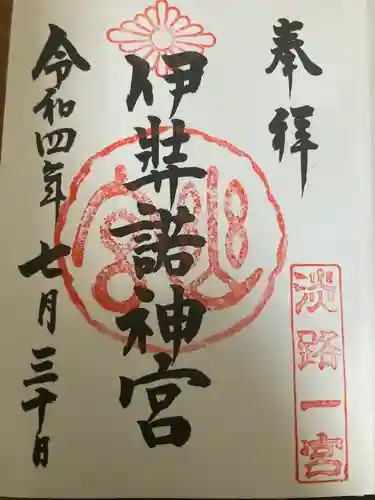 奉祥
淡路一宮
伊弉諾神宮
令和四年七月三十日